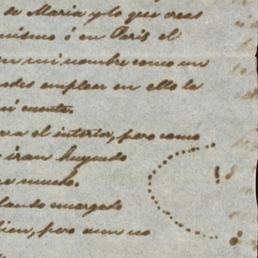 de Maria y lo que crees
mismo ó en Paris el
en mi nombre como un
edes emplear en ello la
mi cuenta.
para el interior, pero como
iran huyendo
mundo.
encargado
bien, pero aun no